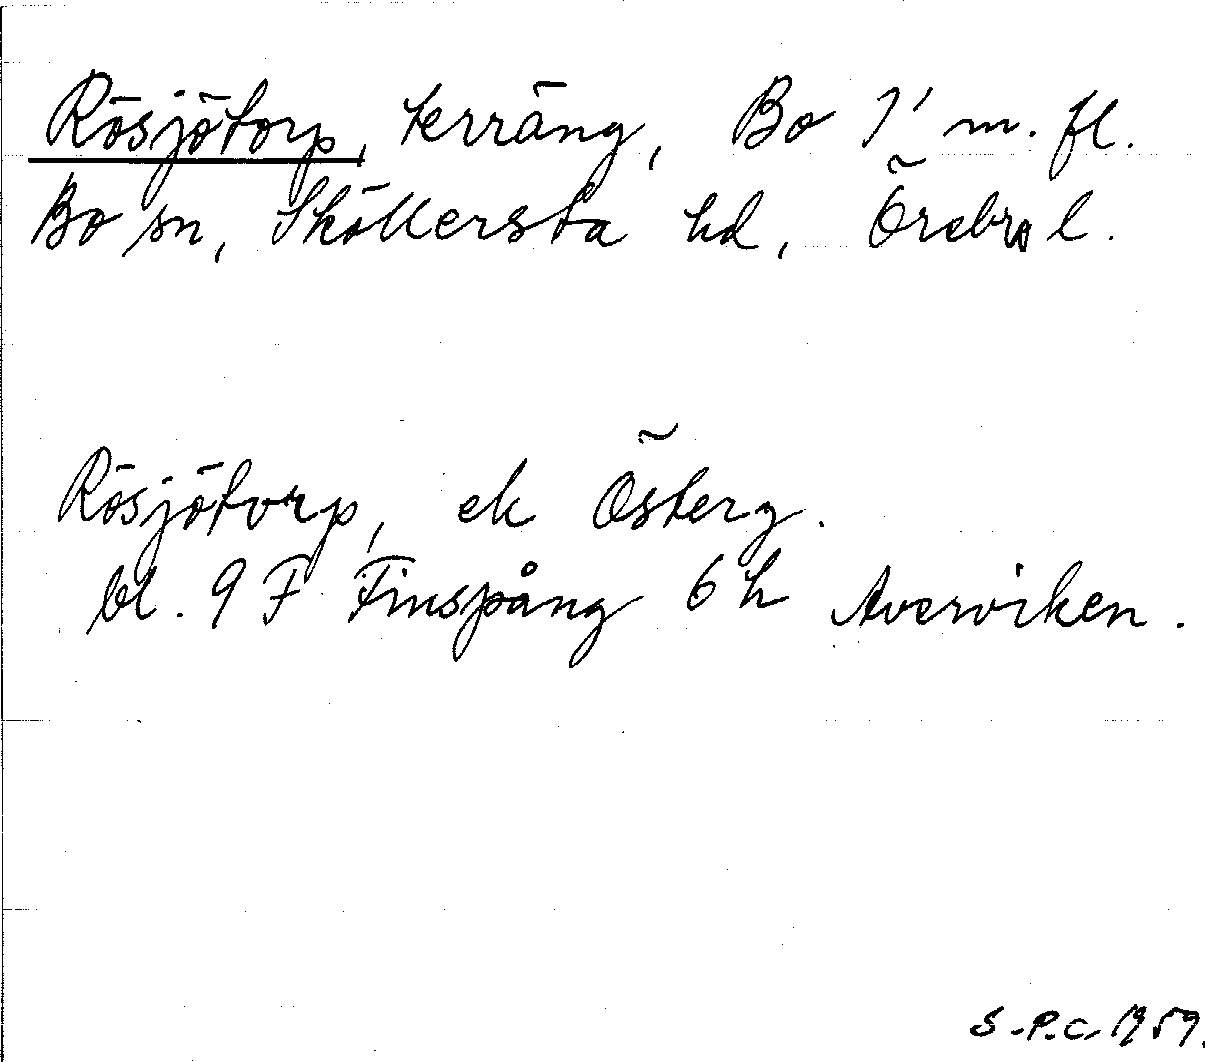 Rösjötorp, terräng, Bo 1' m. fl.
Bo sn, Sköllersta hd, Örebro l.
Rösjötorp, ek Österg.
bl. 9 F Finspång 6 h Averviken.
S.P.C. 1959.